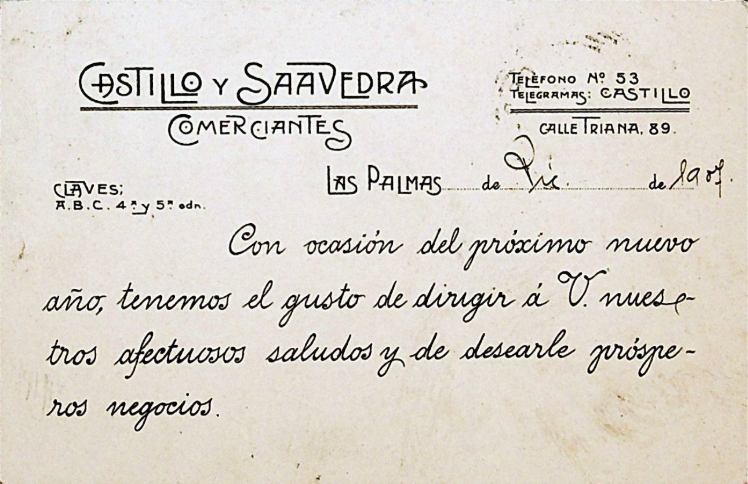 CASTILLO Y SAAVEDRA
COMERCIANTES
TELÉFONO Nº 53
TELEGRAMAS: CASTILLO
CALLE TRIANA, 89.
CLAVES;
A.B.C. 4ª y 5ª edn.
LAS PALMAS de Dic. de 1907.
Con ocasión del próximo nuevo
año, tenemos el gusto de dirigir á V. nues-
tros afectuosos saludos y de desearle próspe-
ros negocios.